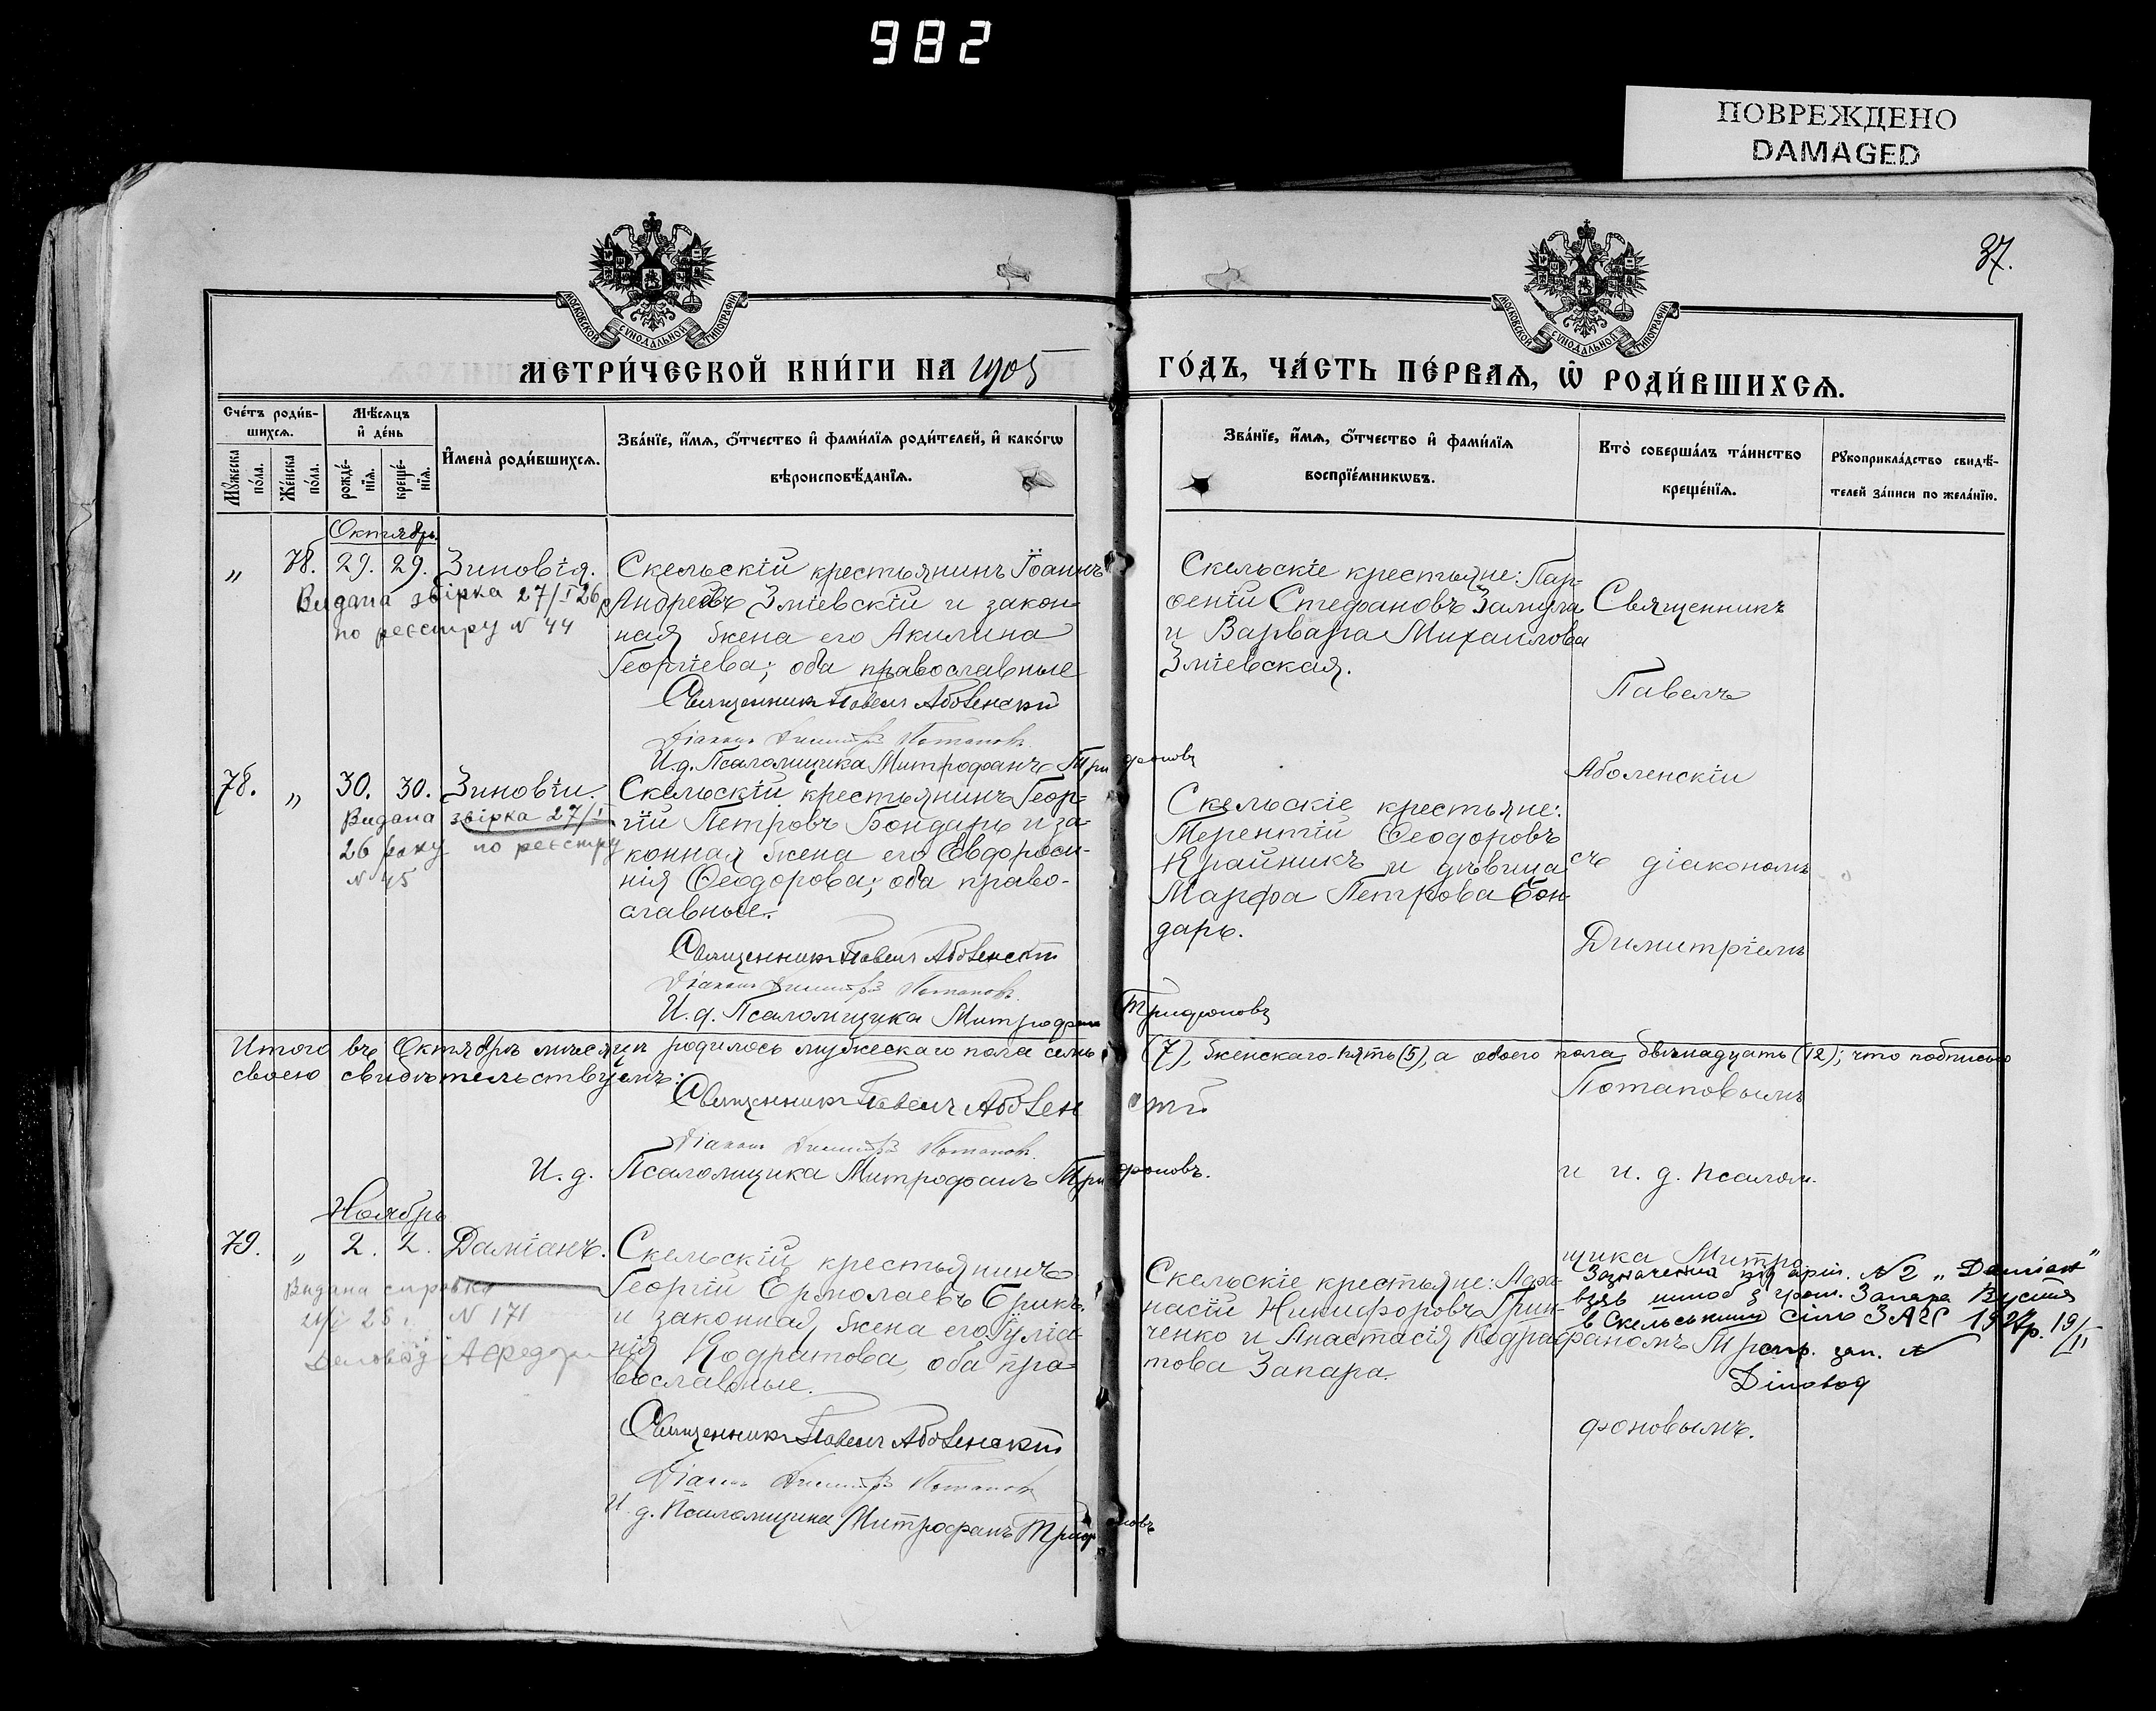 982
ПОВРЕЖДЕНО
DAMAGED
37.
МОСКОВСКОЙ СѴНОДАЛЬНОЙ ТИПОГРАФІИ
МОСКОВСКОЙ СѴНОДАЛЬНОЙ ТИПОГРАФІИ
МЕТРИ́ЧЕСКОЙ КНИ́ГИ НА 1905
ГО́ДЪ, ЧА́СТЬ ПЕ́РВАѦ, Ѽ РОДИ́ВШИХСѦ.
Сче́тъ роди́в-
шихсѧ.
Мꙋ́жеска по́ла.
Же́нска по́ла.
Мѣ́сѧцъ
и҆ де́нь
рожде́-
нїѧ.
креще́-
нїѧ.
И҆мена̀ роди́вшихсѧ.
Зва́нїе, и҆́мѧ, ѻ҆́тчество и҆ фами́лїѧ роди́телей, и҆ како́гѡ
вѣроисповѣ́данїѧ.
Зва́нїе, и҆́мѧ, ѻ҆́тчество и҆ фами́лїѧ
воспрїе́мникѡвъ.
Кто̀ соверша́лъ та́инство
креще́нїѧ.
Рꙋкоприкла́дство свидѣ́-
телей за́писи по жела́нїю.
Октябрь.
„ 78. 29. 29. Зиновія.
Видана збірка 27/I 26 р
по реєстру N 44
Скельскій крестьянинъ Іоаннъ
Андреевъ Зміевскій и закон-
ная жена его Акилина
Георгіева; оба православные
Священникъ Павелъ Аболенскій
Діаконъ Димитрій Потаповъ.
И. д. Псаломщика Митрофанъ Трифоновъ
Скельскіе крестьяне: Пар-
ѳеній Стефановъ
и Варвара Михаилова
Зміевская.
Священникъ
Павелъ
Аболенскій
съ діакономъ
Димитріемъ
78. „ 30. 30. Зиновій.
Видана збірка 27/I
26 року по реєстру
N 45
Скельскій крестьянинъ Геор-
гій Петровъ Бондарь и за-
конная жена его Евдороси-
нія Ѳеодорова; оба право-
славные.
Священникъ Павелъ Аболенскій
Діаконъ Димитрій Потаповъ.
И. д. Псаломщика Митрофанъ Трифоновъ
Скельскіе крестьяне:
Терентій Ѳеодоровъ
Крайникъ и дѣвица
Марфа Петрова Бон-
дарь.
Итого въ Октябрѣ мѣсяцѣ родилось мужескаго пола семь (7), женскаго пять (5), а обоего пола двѣнадцать (12); что подписью
своею свидѣтельствуемъ:
Священникъ Павелъ Аболенскій
Діаконъ Димитрій Потаповъ.
И. д. Псаломщика Митрофанъ Трифоновъ.
Потаповымъ
и и. д. псалом-
щика Митро-
фаномъ Три-
фоновымъ.
Ноябрь
79. „ 2. 2. Даміанъ.
Видана справка
26 N 171
Діловод
Скельскій крестьянинъ
Георгій Ермолаевъ Брикъ
и законная жена его Іуліа-
нія Кодратова, оба пра-
вославные.
Священникъ Павелъ Аболенскій
Діаконъ Димитрій Потаповъ
И. д. Псаломщика Митрофанъ Трифоновъ
Скельскіе крестьяне: Аѳа-
насій Никифоровъ Грин-
ченко и Анастасія Кодра-
това Запара.
Зазначений під N 2 „Даміан"
взяв шлюб з гром. Запара
в Скельським ЗАГС 1927р. 19/II
зап. N
Діловод